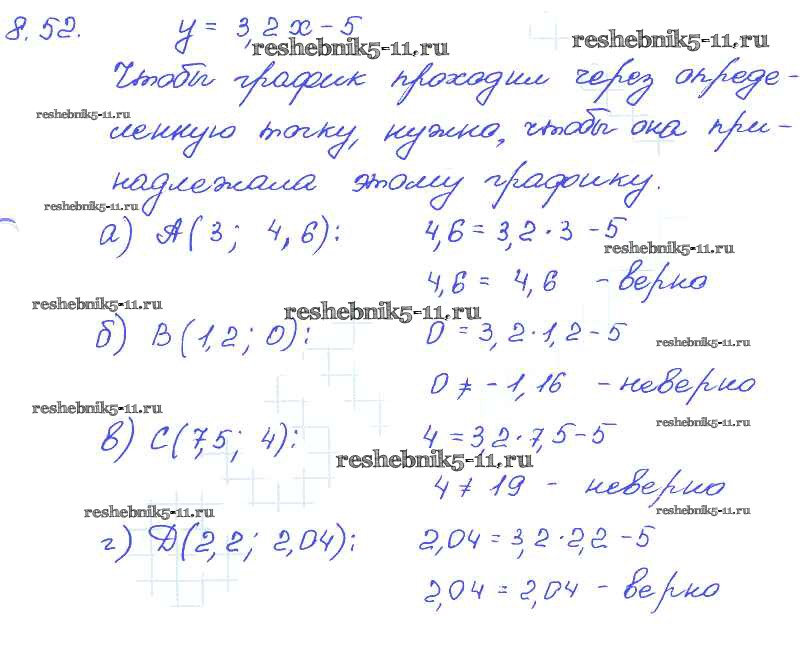 8.52. y = 3,2x - 5
reshebnik5-11.ru reshebnik5-11.ru
Чтобы график проходил через опреде-
reshebnik5-11.ru
ленную точку, нужно, чтобы она при-
надлежала этому графику.
reshebnik5-11.ru
а) A(3; 4,6): 4,6 = 3,2 · 3 - 5
reshebnik5-11.ru
4,6 = 4,6 - верно
reshebnik5-11.ru reshebnik5-11.ru
б) B(1,2; 0): 0 = 3,2 · 1,2 - 5
reshebnik5-11.ru
0 ≠ -1,16 - неверно
reshebnik5-11.ru
reshebnik5-11.ru
в) C(7,5; 4): 4 = 3,2 · 7,5 - 5
reshebnik5-11.ru
4 ≠ 19 - неверно
reshebnik5-11.ru reshebnik5-11.ru
г) D(2,2; 2,04): 2,04 = 3,2 · 2,2 - 5
2,04 = 2,04 - верно